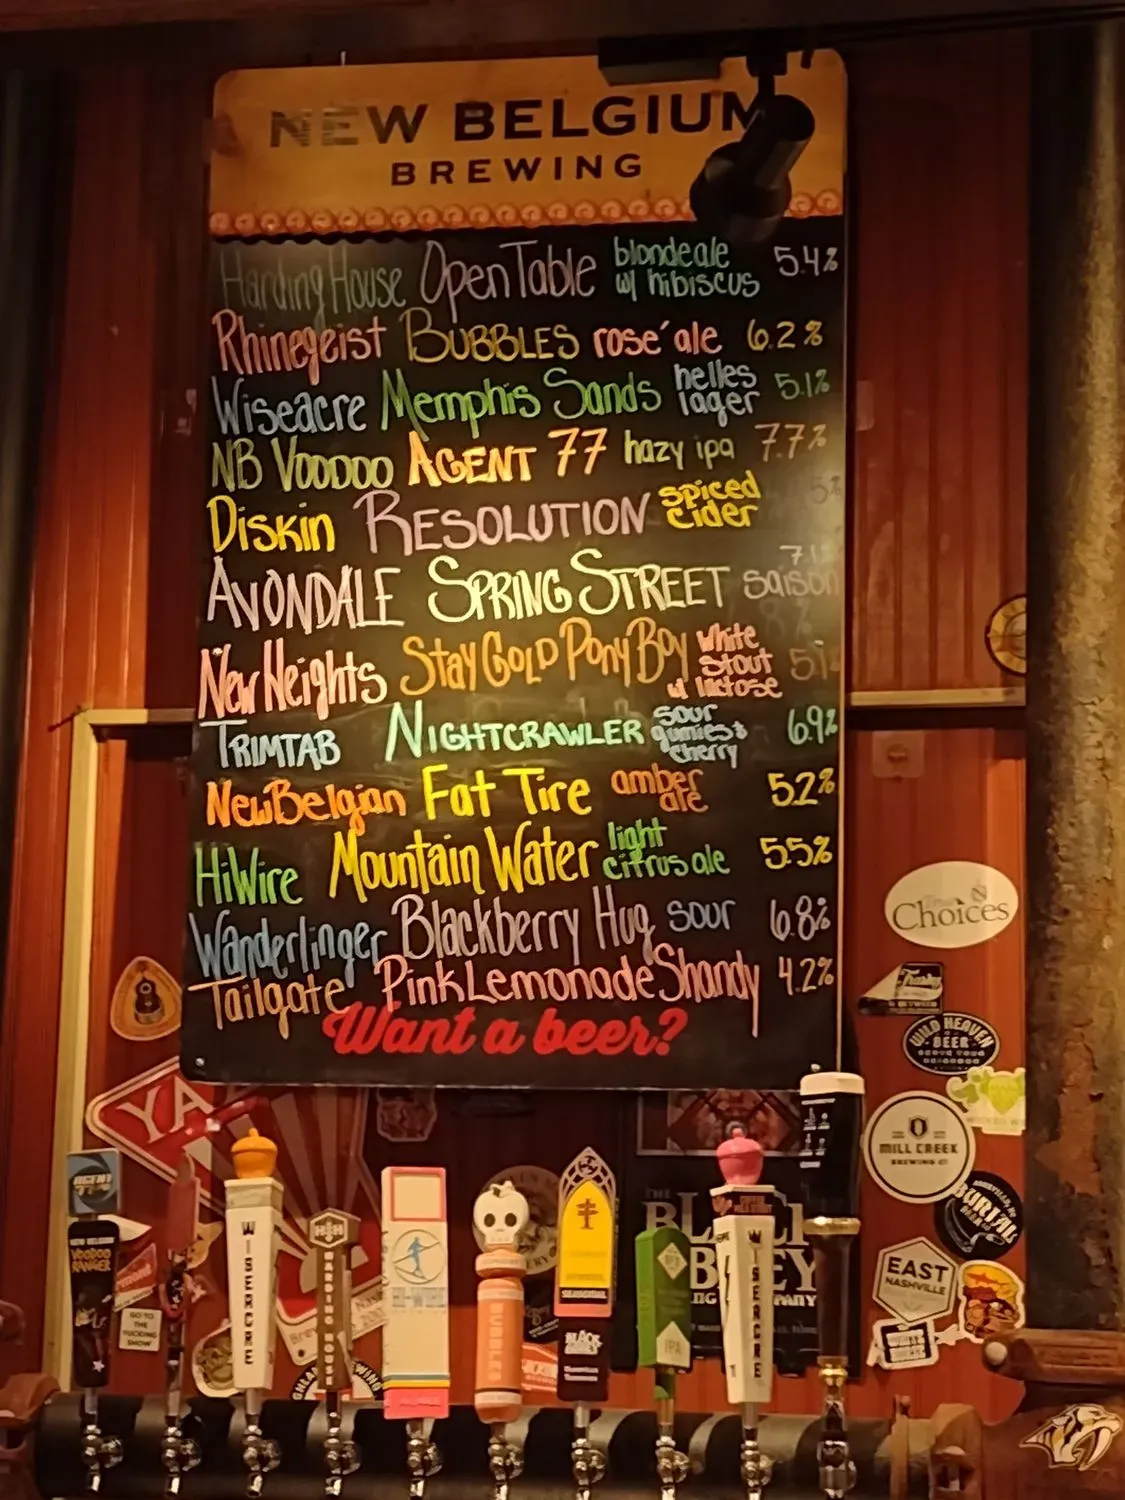 NEW BELGIUM
BREWING
Harding House Open Table blonde ale w/ hibiscus 5.4%
Rhinegeist BUBBLES rosé ale 6.2%
Wiseacre Memphis Sands helles lager 5.1%
NB VOODOO AGENT 77 hazy ipa 7.7%
Diskin RESOLUTION spiced cider
AVONDALE SPRING STREET saison
New Heights Stay Gold Pony Boy white stout w/ lactose
TRIMTAB NIGHTCRAWLER sour gumies & cherry 6.9%
New Belgian Fat Tire amber ale 5.2%
HiWire Mountain Water light citrus ale 5.5%
Wanderlinger Blackberry Hug sour 6.8%
Tailgate Pink Lemonade Shandy 4.2%
Want a beer?
Choices
WILD HEAVEN
BEER
YA
MILL CREEK
BREWING CO
BURIAL
EAST
NASHVILLE
AGENT
NEW BELGIUM
VOODOO
RANGER
GO TO
THE
FUCKING
SHOW
WISEACRE
H H
HARDING HOUSE
HI-WIRE
BUBBLES
BLACK
ABBEY
THE
IPA
WISEACRE